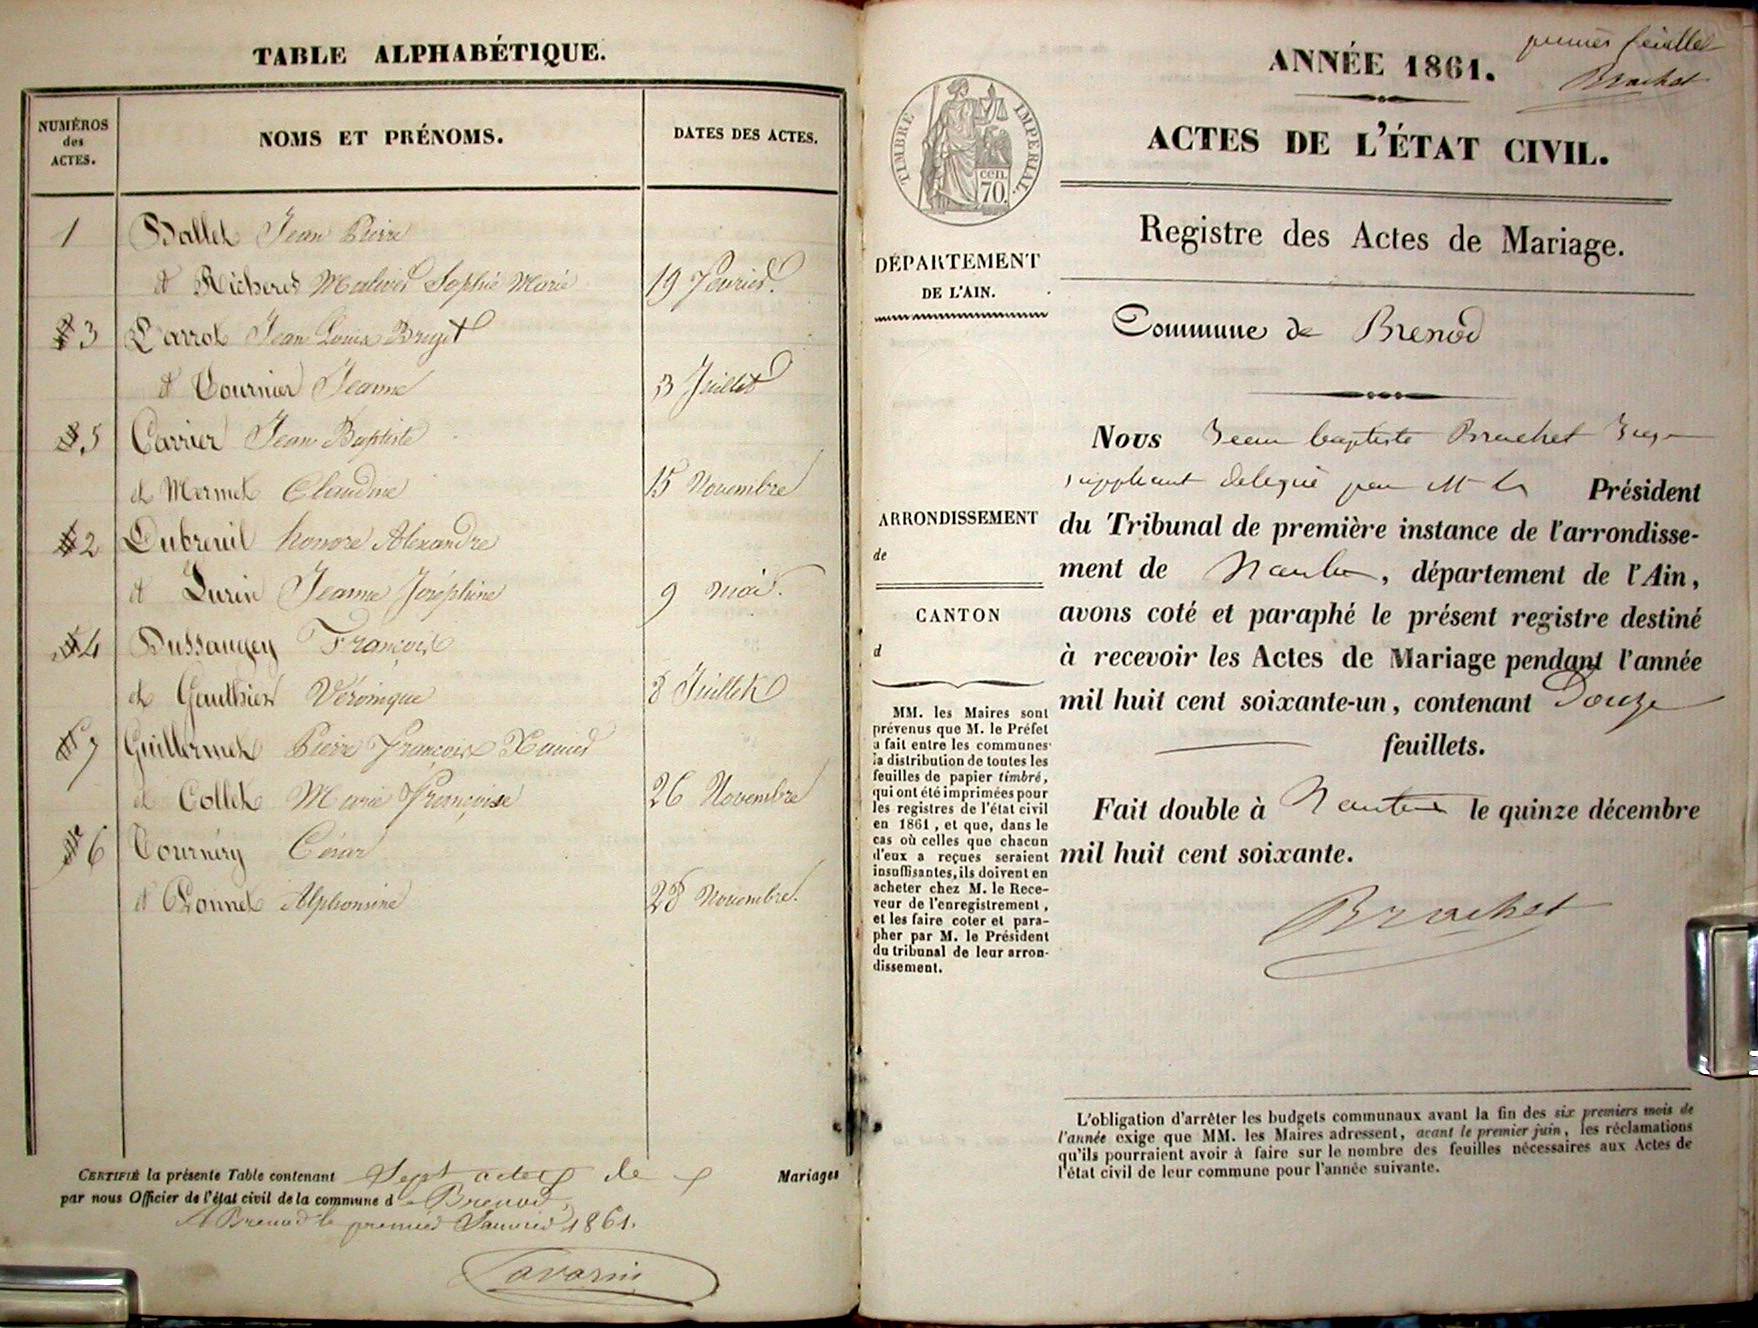 TABLE ALPHABÉTIQUE.
NUMÉROS
des
ACTES.
NOMS ET PRÉNOMS.
DATES DES ACTES.
1 Ballet Jean Pierre
et Richerot Sophie Marie 19 février
3 Carrot Jean Louis
et Tournier Jeanne 3 Juillet
5 Carrier Jean Baptiste
et Mermet Claudine 15 Novembre
2 Dubreuil honore Alexandre
et Jeanne Joséphine 9 mai
4 Dussaugey François
et Gauthier Véronique 8 Juillet
7 Guillermet Pierre François Xavier
et Collet Marie Françoise 26 Novembre
6 Tournéry César
et Alphonsine 28 Novembre.
CERTIFIÉ la présente Table contenant Sept actes de Mariages
par nous Officier de l'état civil de la commune de Brenod,
A Brenod le premier Janvier 1861.
Savarin
premier feuillet
Brachet
ANNÉE 1861.
ACTES DE L'ÉTAT CIVIL.
Registre des Actes de Mariage.
Commune de Brenod
TIMBRE IMPÉRIAL.
70.
cen.
DÉPARTEMENT
DE L'AIN.
ARRONDISSEMENT
de
CANTON
d
MM. les Maires sont
prévenus que M. le Préfet
a fait entre les communes
la distribution de toutes les
feuilles de papier timbré,
qui ont été imprimées pour
les registres de l'état civil
en 1861, et que, dans le
cas où celles que chacun
d'eux a reçues seraient
insuffisantes, ils doivent en
acheter chez M. le Rece-
veur de l'enregistrement,
et les faire coter et para-
pher par M. le Président
du tribunal de leur arron-
dissement.
Nous Jean baptiste Brachet Juge
suppleant delegué par M le Président
du Tribunal de première instance de l'arrondisse-
ment de Nantua, département de l'Ain,
avons coté et paraphé le présent registre destiné
à recevoir les Actes de Mariage pendant l'année
mil huit cent soixante-un, contenant Douze
feuillets.
Fait double à Nantua le quinze décembre
mil huit cent soixante.
Brachet
L'obligation d'arrêter les budgets communaux avant la fin des six premiers mois de
l'année exige que MM. les Maires adressent, avant le premier juin, les réclamations
qu'ils pourraient avoir à faire sur le nombre des feuilles nécessaires aux Actes de
l'état civil de leur commune pour l'année suivante.